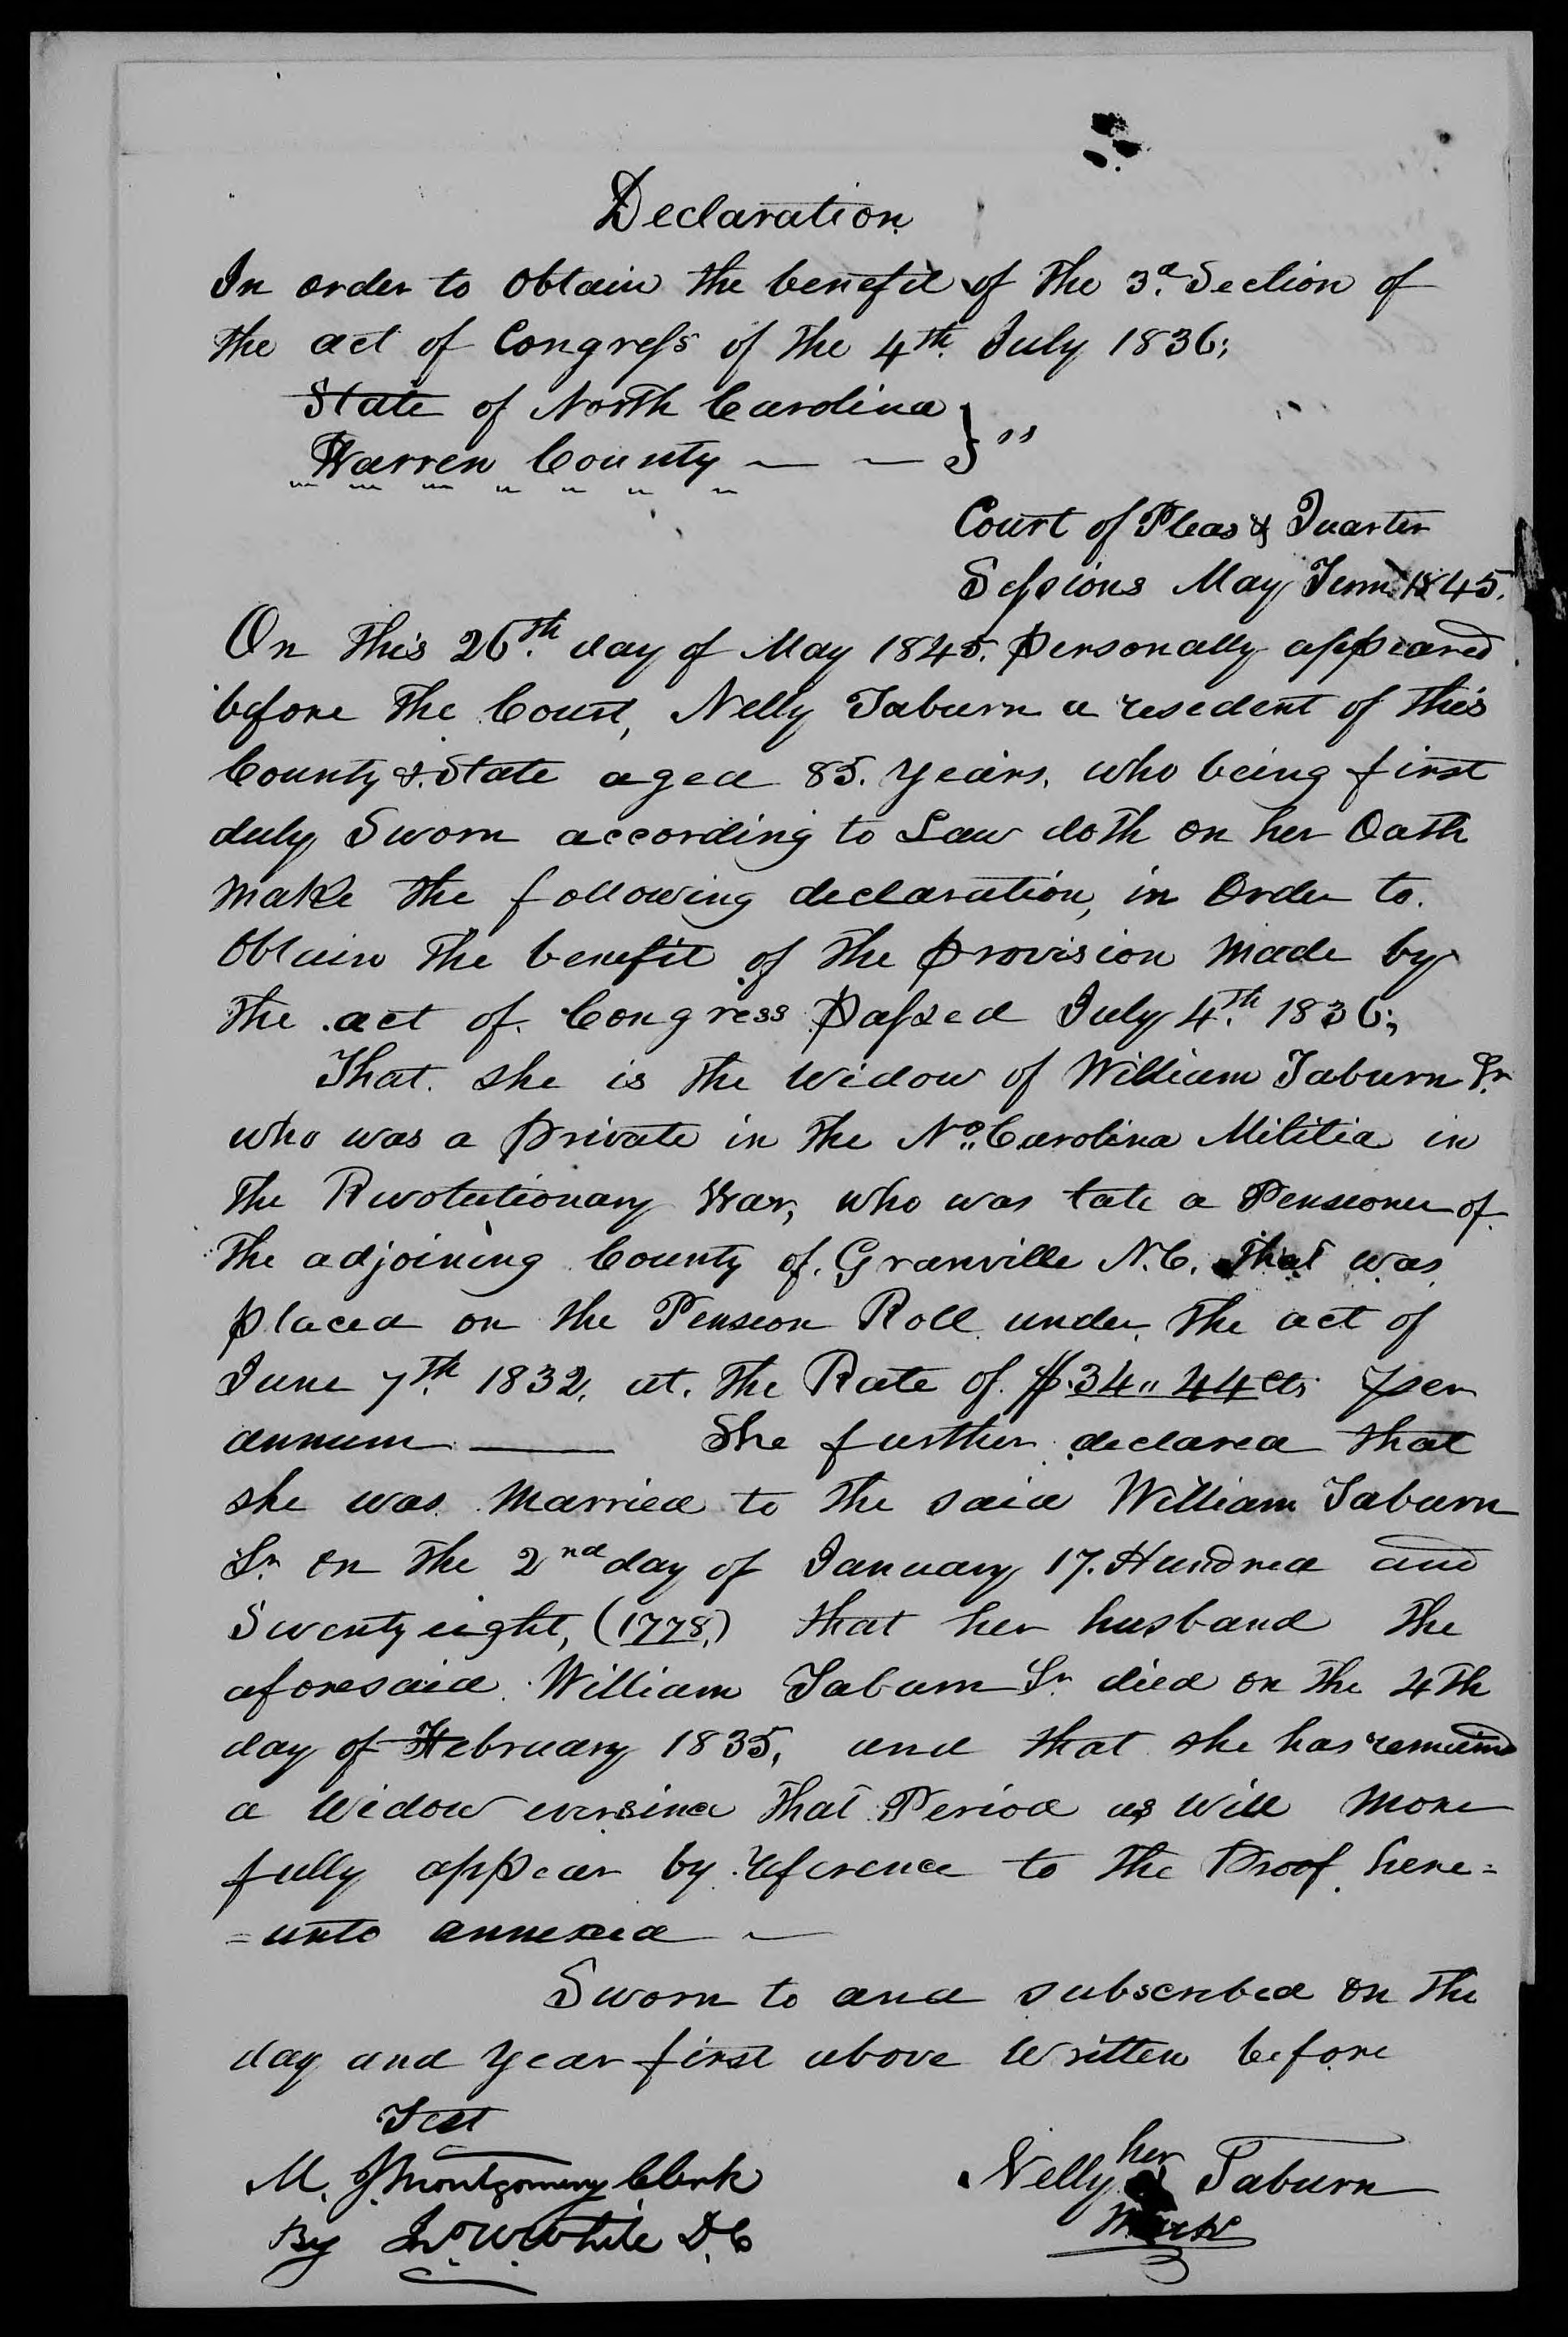 Declaration
In order to obtain the benefit of the 3.d Section of
the act of Congress of the 4th. July 1836;
State of North Carolina
Warren County — — } ss
Court of Pleas & Quarter
Sessions May Term 1845.
On this 26.th day of May 1845. personally appeared
before the Court, Nelly Taburn a resedent of this
County & State aged 85. years, who being first
duly Sworn according to Law doth on her Oath
make the following declaration, in Order to.
obtain the benefit of the provision made by
the act of Congress passed July 4.th 1836;
That she is the widow of William Taburn Sr.
who was a private in the No. Carolina Militia in
the Revolutionary War, who was late a Pensioner of
the adjoining County of Granville N.C. that was
placed on the Pension Roll under the act of
June 7th. 1832, at the Rate of $.34" 44 cts per
annum — She further declared that
she was married to the said William Taburn
Sr. on the 2nd day of January 17. Hundred and
Seventy eight, (1778,) that her husband the
aforesaid William Taburn Sr. died on the 4th
day of February 1835, and that she has remained
a widow eversince that Period as will more
fully appear by reference to the Proof here=
=unto annexed —
Sworn to and subscribed on the
day and year first above written before
Test
M. J. Montgomery Clerk
By Jno. W. White D.C
her
Nelly Taburn
mark